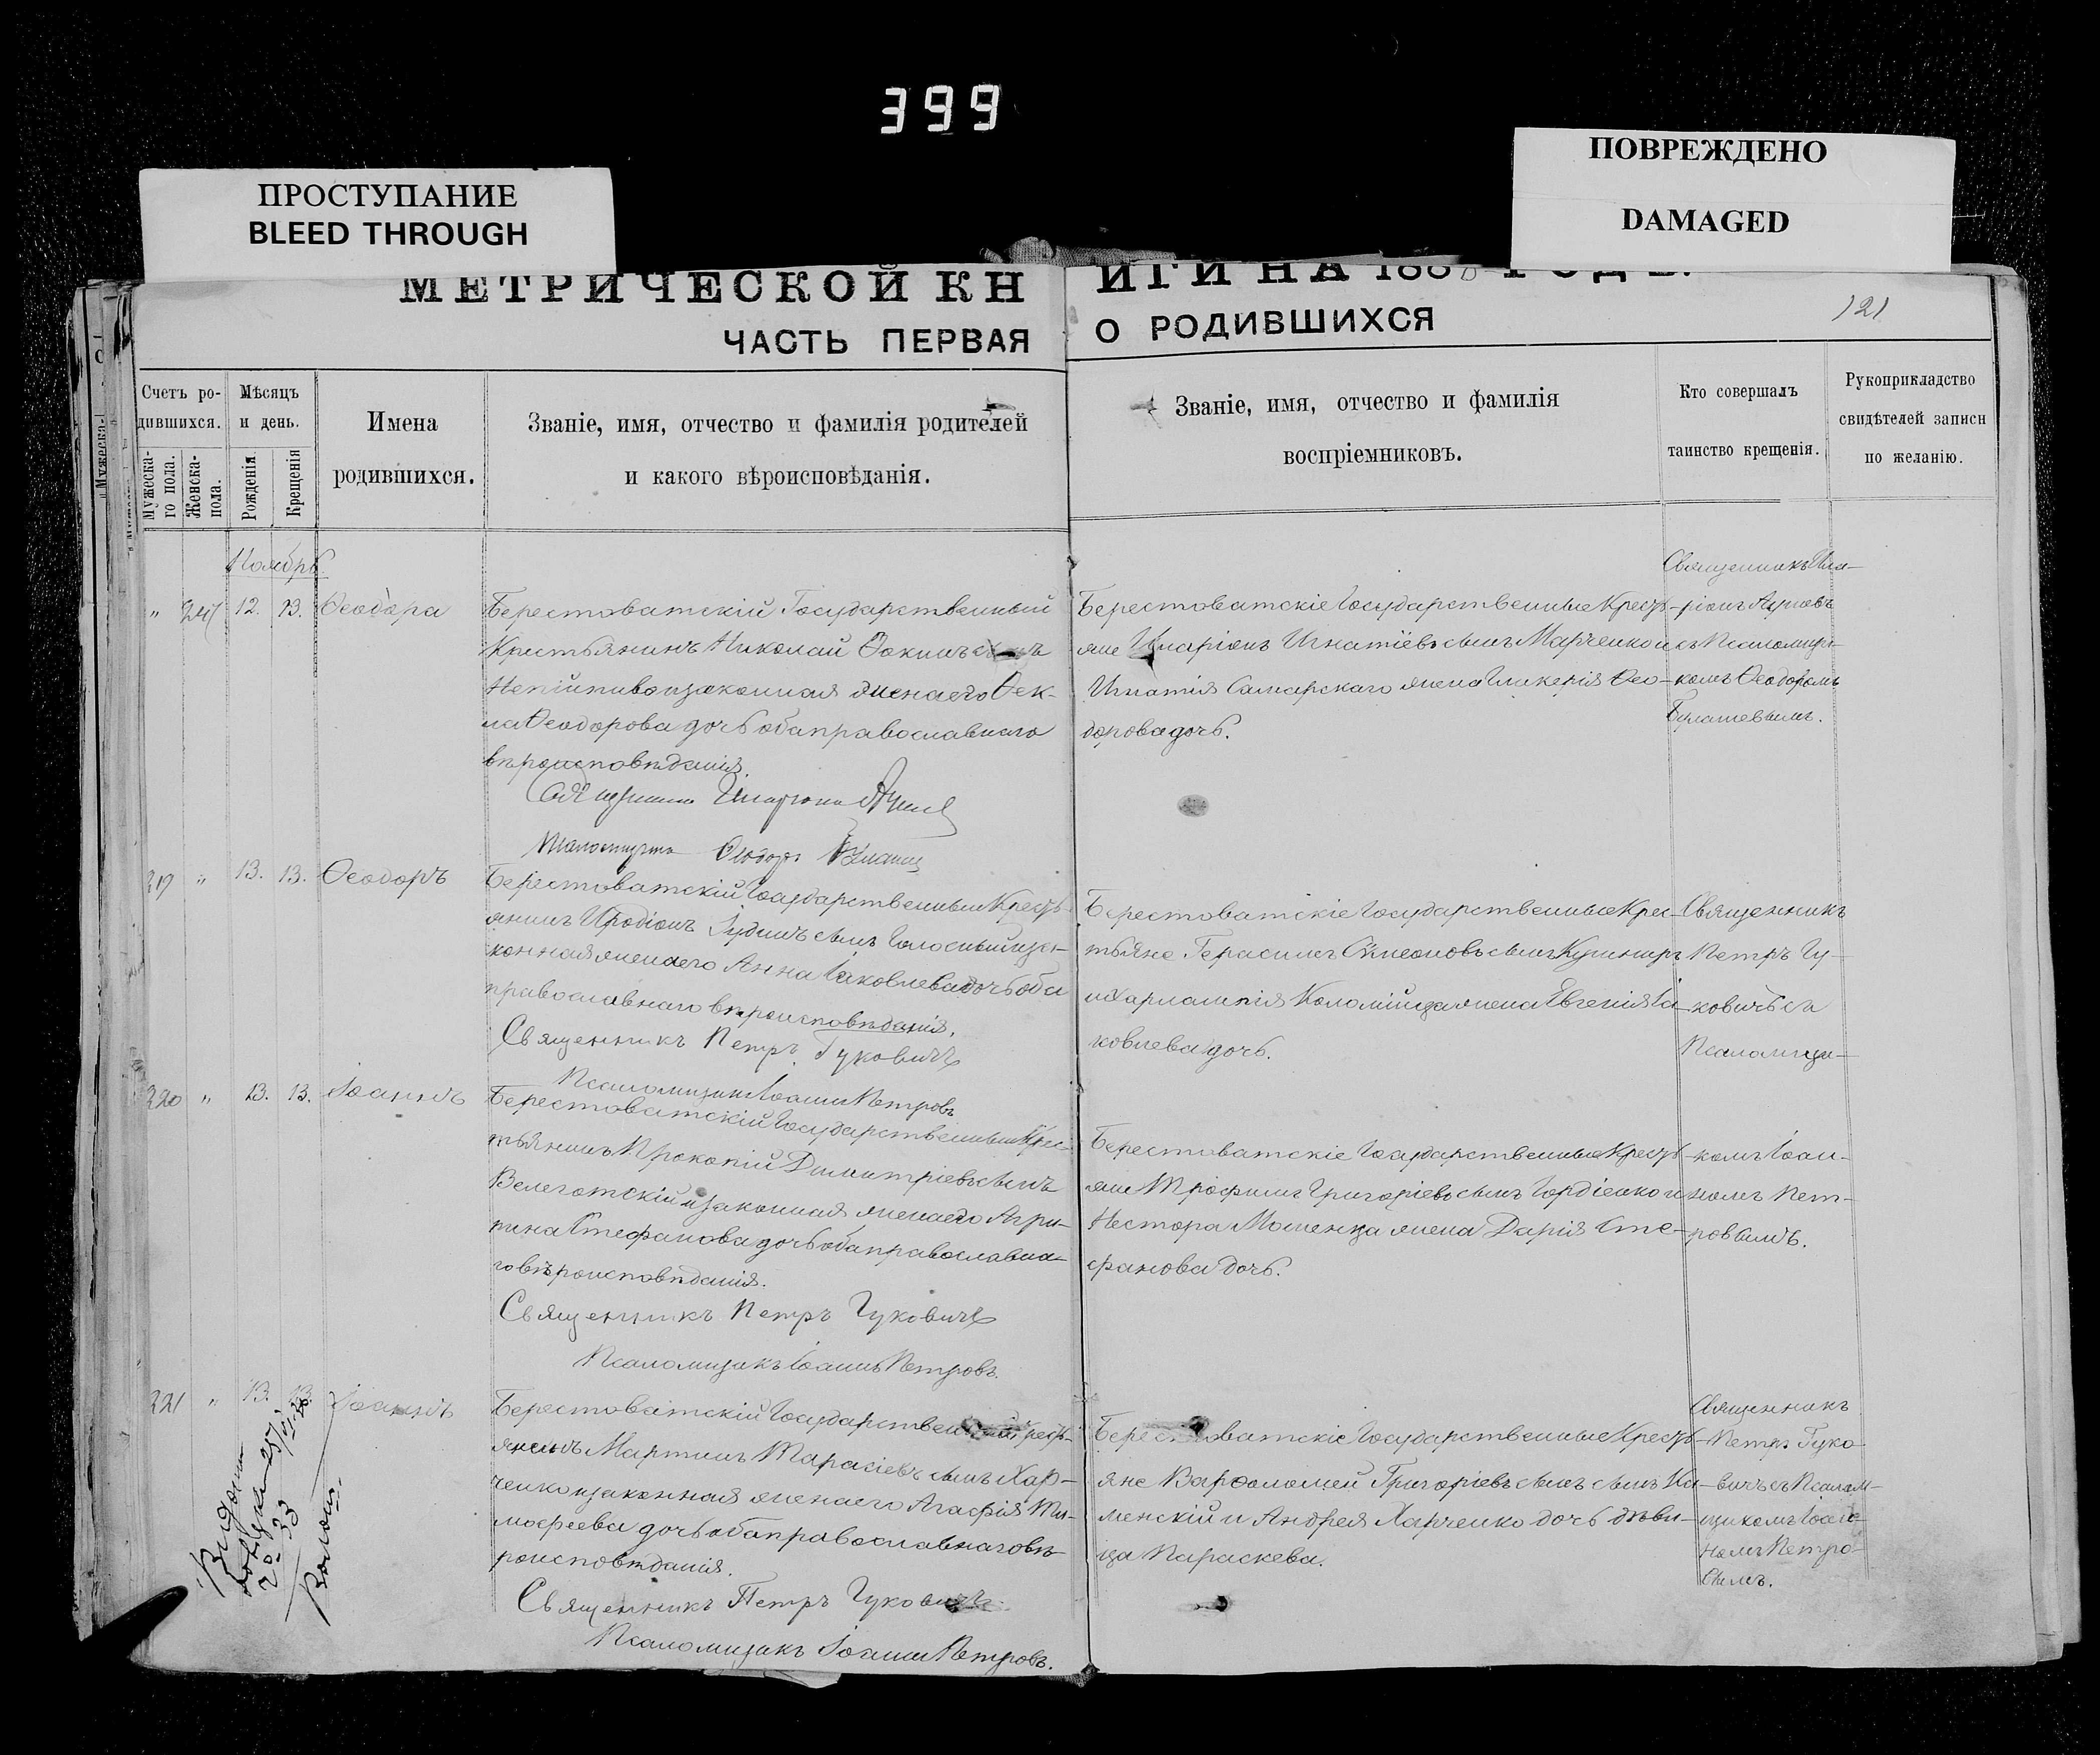 399
ПРОСТУПАНИЕ
BLEED THROUGH
ПОВРЕЖДЕНО
DAMAGED
МЕТРИЧЕСКОЙ КНИГИ НА 188 ГОДЪ.
121
ЧАСТЬ ПЕРВАЯ О РОДИВШИХСЯ
Счетъ ро-
дившихся.
Мужеска-
го пола.
Женска-
пола.
Мѣсяцъ
и день.
Рожденія
Крещенія
Имена
родившихся.
Званіе, имя, отчество и фамилія родителей
и какого вѣроисповѣданія.
Званіе, имя, отчество и фамилія
воспріемниковъ.
Кто совершалъ
таинство крещенія.
Рукоприкладство
свидѣтелей записи
по желанію.
Ноябрь
" 12. 13. Ѳеодора
Берестоватскій Государственный
Крестьянинъ Николай
и законная жена его Ѳек-
ла Ѳеодорова дочь оба православнаго
вѣроисповѣданія.
Священникъ Иларіонъ
Псаломщикъ Ѳеодоръ
Берестоватскіе Государственные Кресть-
яне Иларіонъ Игнатіевъ сынъ Марченко и
Игнатія Самарскаго жена Гликерія Ѳео-
дорова дочь.
Священникъ Ила-
ріонъ
съ Псаломщи-
комъ Ѳеодоромъ
219 " 13. 13. Ѳеодоръ
Берестоватскій Государственный Кресть-
янинъ Иродіонъ сынъ и за-
конная жена его Анна Іаковлева дочь оба
православнаго вѣроисповѣданія.
Священникъ Петръ Гуковичъ
Псаломщикъ Іоаннъ Петровъ
Берестоватскіе Государственные Крес-
тьяне Герасимъ Симеоновъ сынъ Кушниръ
и Харлампія Коломійца жена Евгенія Іа-
ковлева дочь.
Священникъ
Петръ Гу-
ковичъ съ
Псаломщи-
220 " 13. 13. Іоаннъ
Берестоватскій Государственный Крес-
тьянинъ Прокопій Димитріевъ сынъ
Велеготскій и законная жена его Агри-
пина Стефанова дочь оба православна-
го вѣроисповѣданія.
Священникъ Петръ Гуковичъ
Псаломщикъ Іоаннъ Петровъ.
Берестоватскіе Государственные Кресть-
яне Трофимъ Григоріевъ сынъ Гордіенко и
Нестора жена Дарія Сте-
фанова дочь.
комъ Іоан-
номъ Пет-
ровымъ.
221 " 13. 13. Іоаннъ
Берестоватскій Государственный Кресть-
янинъ Мартинъ Тарасіевъ сынъ Хар-
ченко и законная жена его Агафія Ти-
мофеева дочь оба православнаго вѣ-
роисповѣданія.
Священникъ Петръ Гуковичъ.
Псаломщикъ Іоаннъ Петровъ.
Берестоватскіе Государственные Кресть-
яне Варѳоломей Григоріевъ сынъ сынъ Ка-
менскій и Андрея Харченко дочь дѣви-
ца Параскева.
Священникъ
Петръ Гуко-
вичъ съ Псалом-
щикомъ Іоан-
номъ Петро-
вымъ.